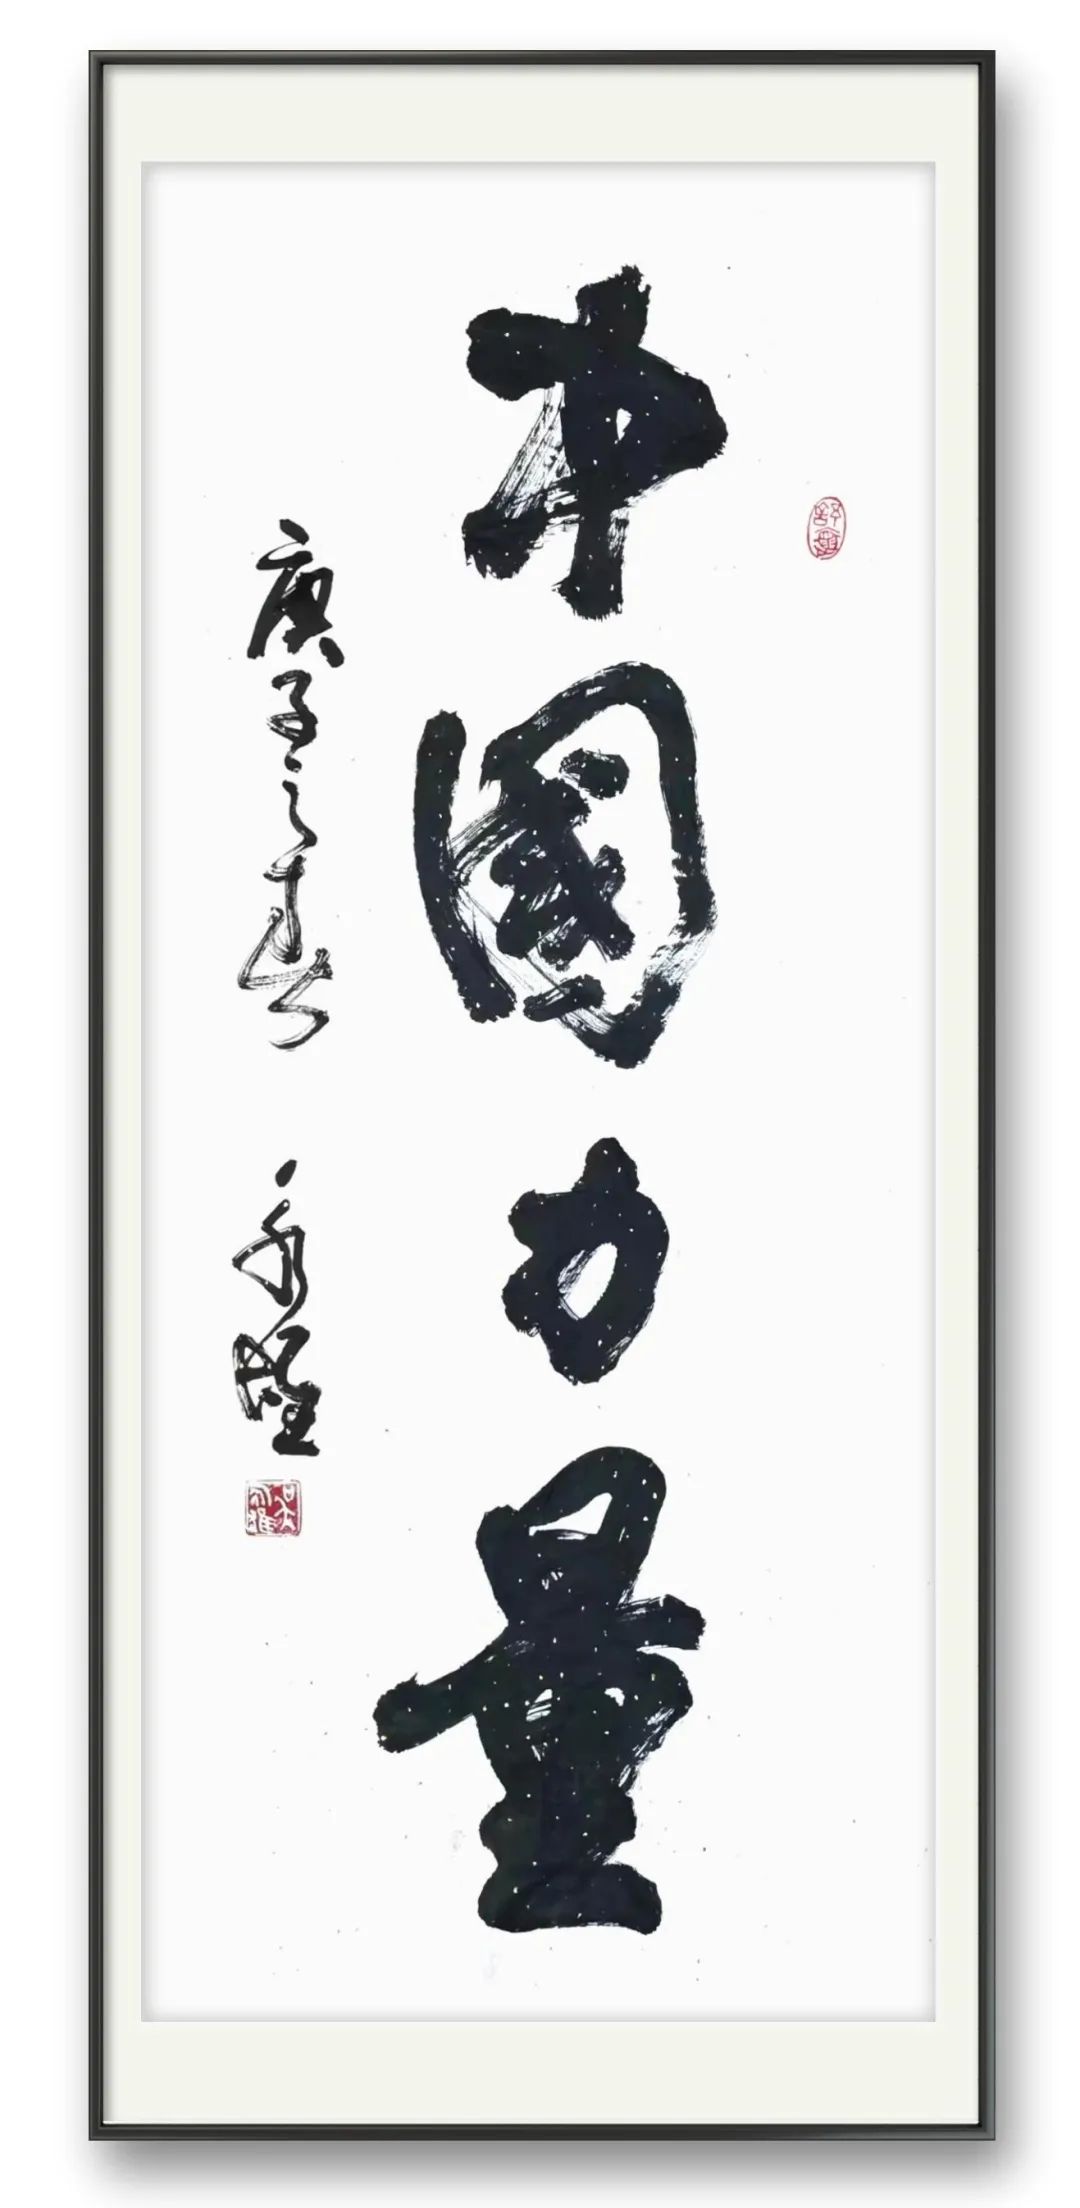 中國力量
庚子之春